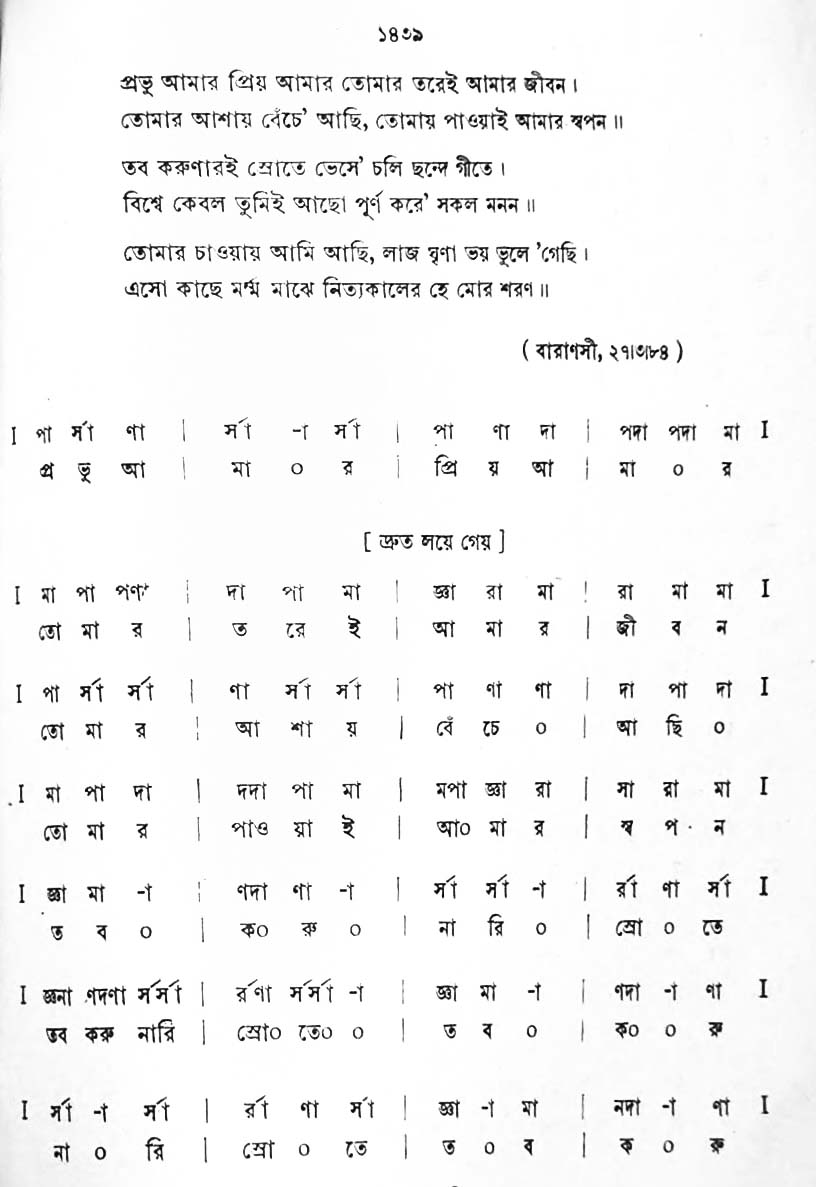 ১৪৩৯
প্রভু আমার প্রিয় আমার তোমার তরেই আমার জীবন।
তোমার আশায় বেঁচে' আছি, তোমায় পাওয়াই আমার স্বপন॥
তব করুণারই স্রোতে ভেসে' চলি ছন্দে গীতে।
বিশ্বে কেবল তুমিই আছো পূর্ণ করে' সকল মনন॥
তোমার চাওয়ায় আমি আছি, লাজ ঘৃণা ভয় ভুলে 'গেছি।
এসো কাছে মর্ম্ম মাঝে নিত্যকালের হে মোর শরণ॥
( বারাণসী, ২৭।৩।৮৪ )
I পা র্সা ণা | র্সা -া র্সা | পা ণা দা | পদা পদা মা I
প্র ভু আ | মা ০ র | প্রি য় আ | মা ০ র
[ দ্রুত লয়ে গেয় ]
I মা পা পণা | দা পা মা | জ্ঞা রা মা | রা মা মা I
তো মা র | ত রে ই | আ মা র | জী ব ন
I পা র্সা র্সা | ণা র্সা র্সা | পা ণা ণা | দা পা দা I
তো মা র | আ শা য় | বেঁ চে ০ | আ ছি ০
I মা পা দা | দদা পা মা | মপা জ্ঞা রা | সা রা মা I
তো মা র | পাও য়া ই | আ০ মা র | স্ব প ন
I জ্ঞা মা -া | ণদা ণা -া | র্সা র্সা -া | র্রা ণা র্সা I
ত ব ০ | ক০ রু ০ | না রি ০ | স্রো ০ তে
I জ্ঞনা ণদণা র্সর্সা | র্রণা র্সর্সা -া | জ্ঞা মা -া | ণদা -া ণা I
তব করু নারি | স্রো০ তে০ ০ | ত ব ০ | ক০ ০ রু
I র্সা -া র্সা | র্রা ণা র্সা | জ্ঞা -া মা | নদা -া ণা I
না ০ রি | স্রো ০ তে | ত ০ ব | ক ০ রু